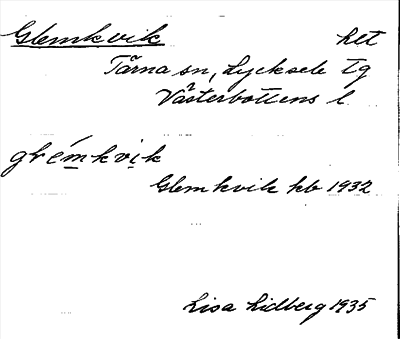 Glemkvik hlt
Tärna sn, Lycksele tg
Västerbottens l.
grémkvik
Glemkvik kb 1932
Lisa Lidberg 1935